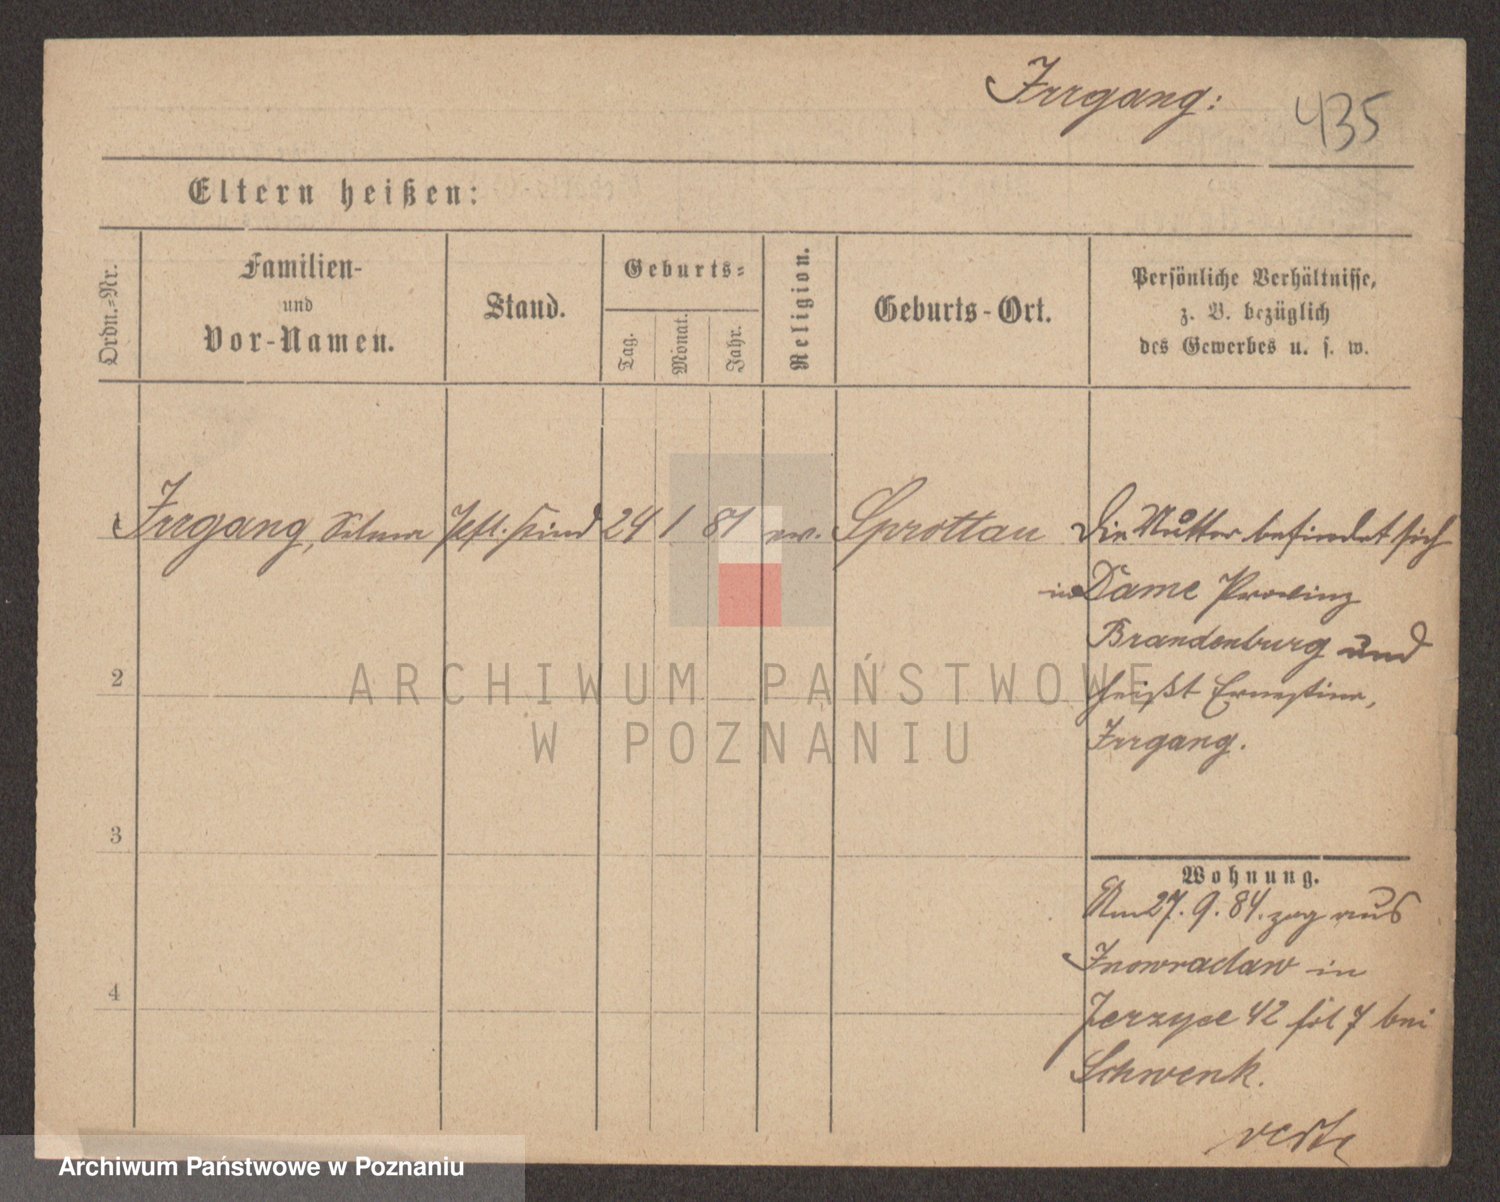 Irrgang:
435
Eltern heißen:
Ordn.-Nr.
Familien-
und
Vor-Namen.
Stand.
Geburts-
Tag.
Monat.
Jahr.
Religion.
Geburts-Ort.
Persönliche Verhältnisse,
z. B. bezüglich
des Gewerbes u. s. w.
1 Irrgang, Selma Pfl. Kind 24 1 81 ev. Sprottau Die Mutter befindet sich
in Dame Provinz
Brandenburg und
heißt Ernestine,
Irrgang.
2
3
4
Wohnung.
Am 27. 9. 84. zog aus
Inowraclaw in
Jerzyce 42 fol 7 bei
Schwenk.
verte
ARCHIWUM PAŃSTWOWE
W POZNANIU
Archiwum Państwowe w Poznaniu